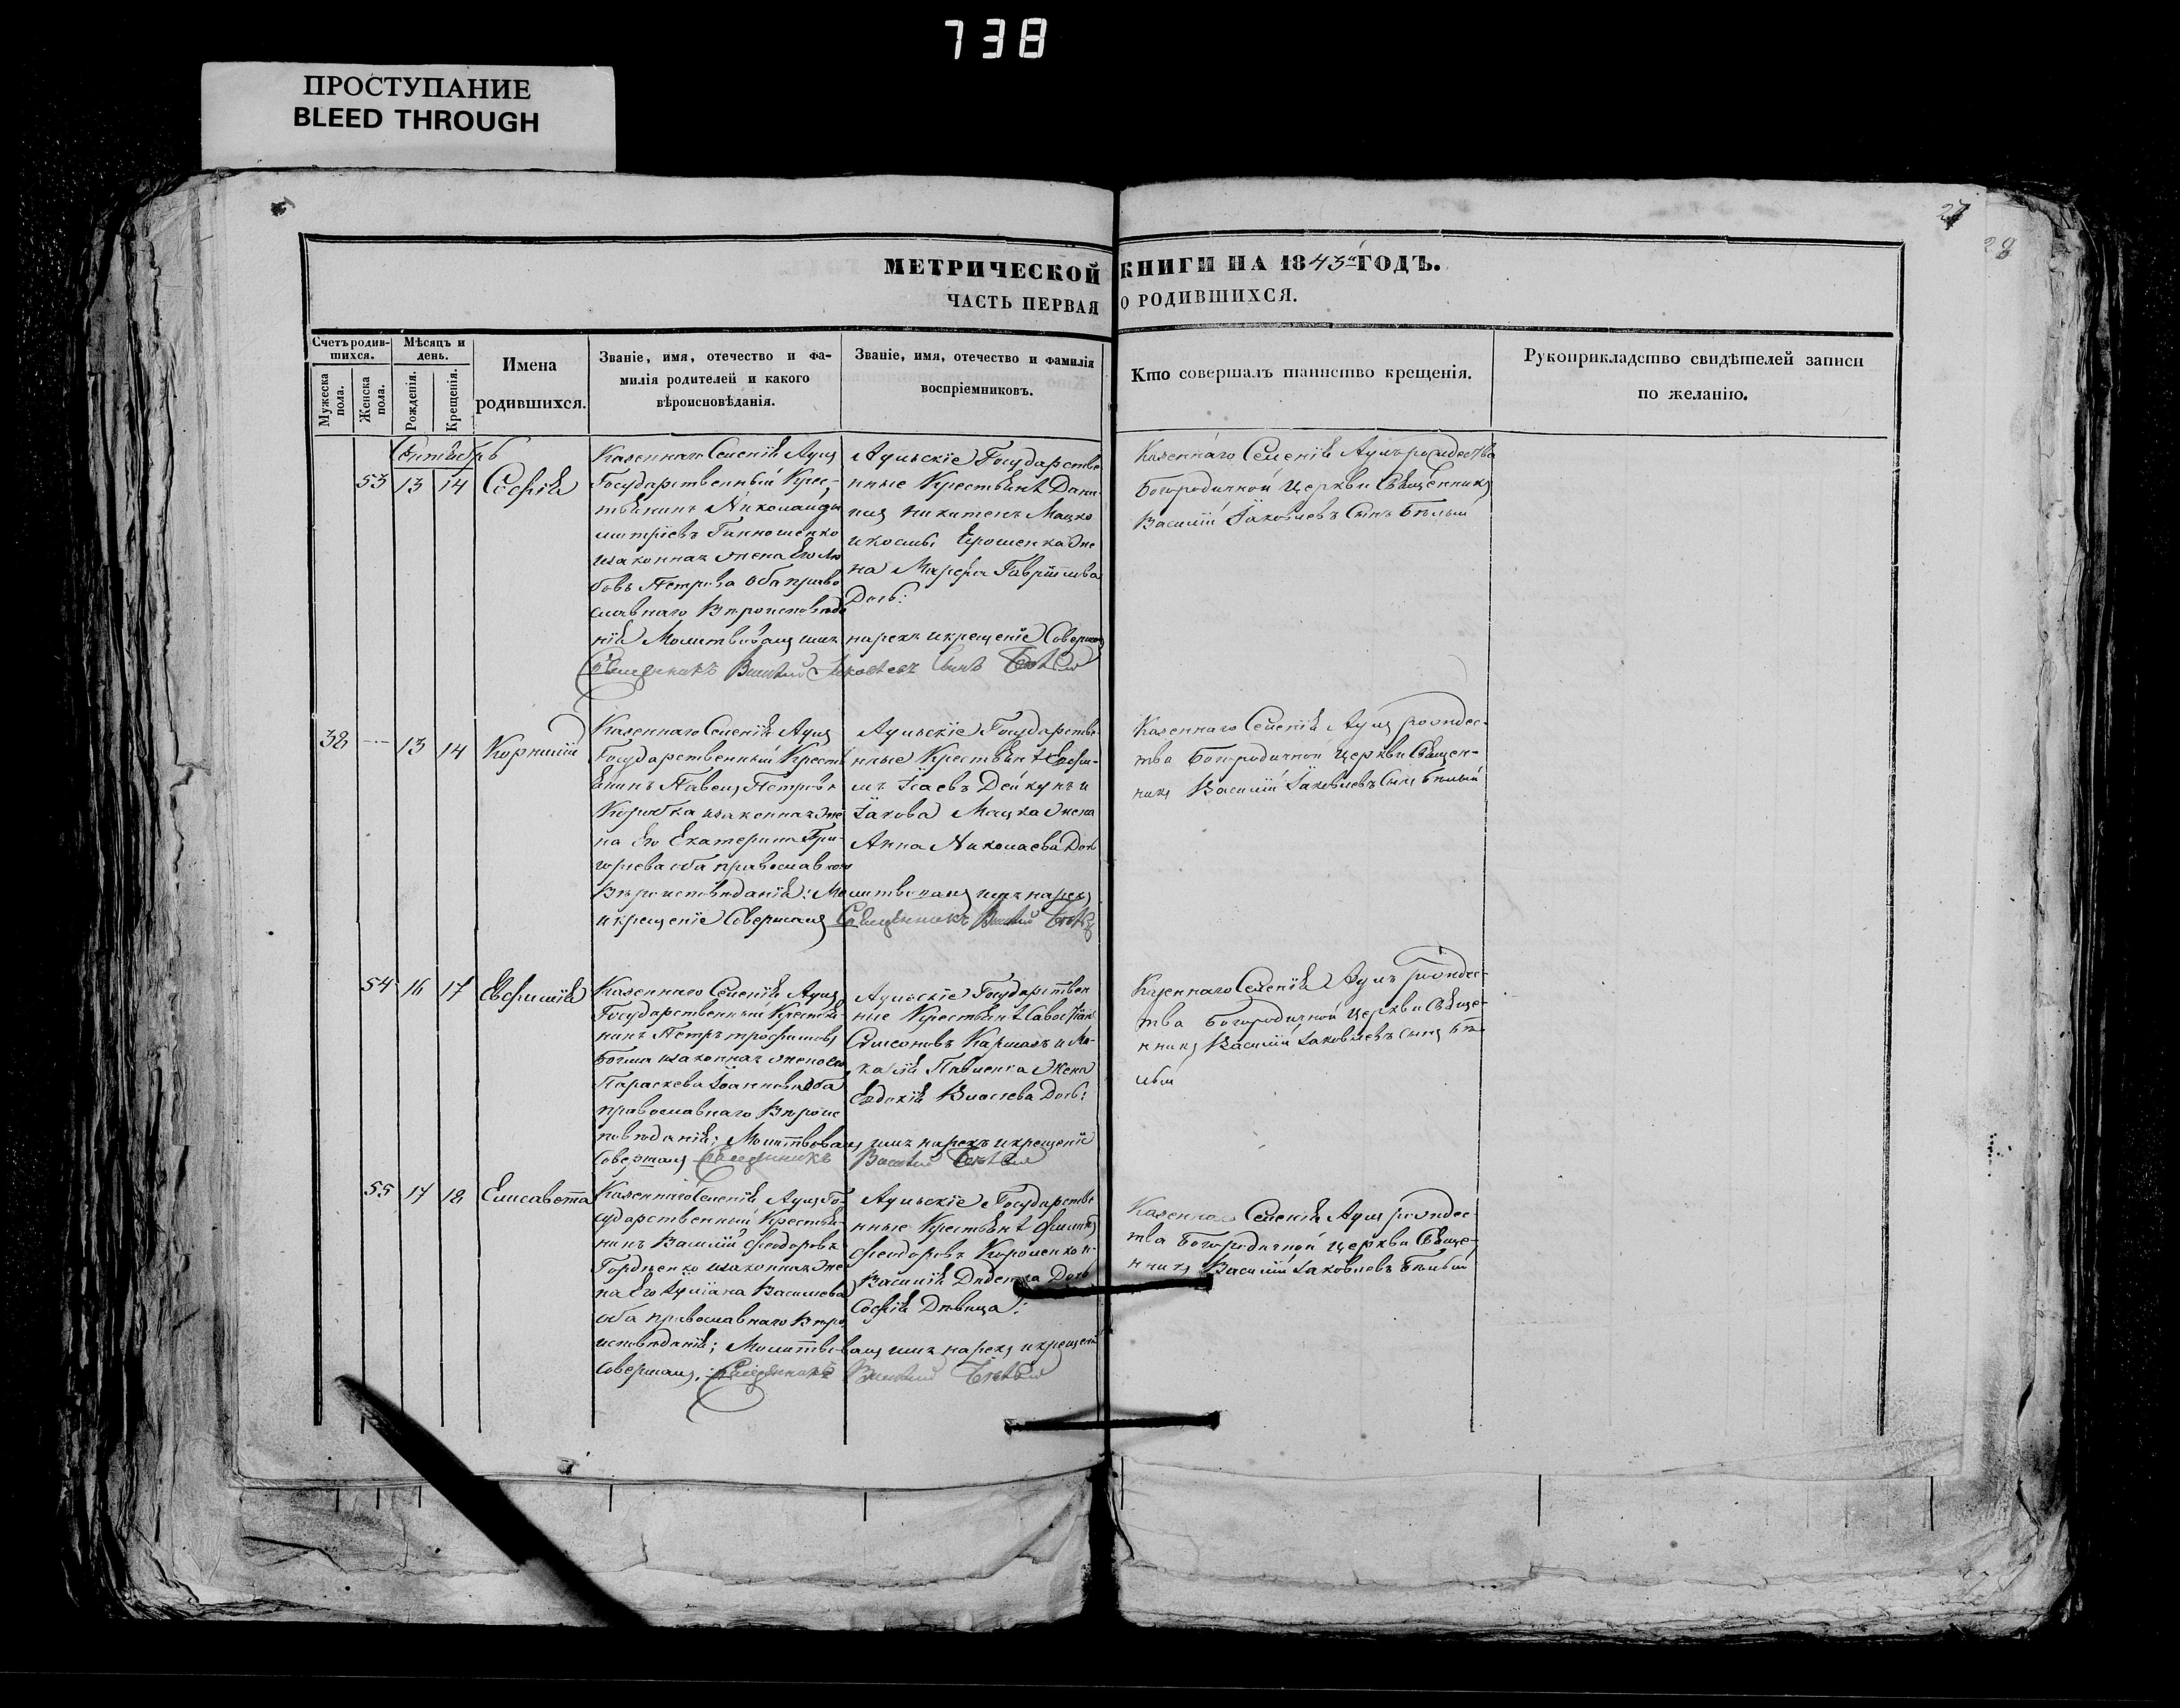 738
ПРОСТУПАНИЕ
BLEED THROUGH
27
28
МЕТРИЧЕСКОЙ КНИГИ НА 1843й ГОДЪ.
ЧАСТЬ ПЕРВАЯ О РОДИВШИХСЯ.
Счетъ родив-
шихся.
Мужеска
пола.
Женска
пола.
Мѣсяцъ и
день.
Рожденія.
Крещенія.
Имена
родившихся.
Званіе, имя, отечество и фа-
милія родителей и какого
вѣроисповѣданія.
Званіе, имя, отечество и фамилія
воспріемниковъ.
Кто совершалъ таинство крещенія.
Рукоприкладство свидѣтелей записи
по желанію.
Сентябрь
53 13 14 Софія
Казеннаго Селенія Аулъ
Государственный Крес-
тьянинъ Николай
митріевъ
изаконная жена Его Лю
бовь Петрова Оба право
славнаго Вѣроисповѣда
нія Молитвовалъ имя нарекъ икрещеніе Совершалъ
Священникъ Василій Яковлевъ Сынъ Бѣлый
Аульскіе Государстве
нные Крестьяне Дани
илъ Никитенъ Мацко
икосмы Ерошенка Же
на Марфа Гавріилова
Дочь:
Казеннаго Селенія Аулъ рождества
Богородичной Церкви Священникъ
Василій Іаковлевъ Сынъ Бѣлый
38 13 14 Корнилій
Казеннаго Селенія Аулъ
Государственный Кресть
янинъ Павелъ Петровъ
изаконная Же
на Его Екатерина Гри-
горіева оба православнаго
Вѣроисповѣданія: Молитвовалъ имя нарекъ
икрещеніе Совершалъ Священникъ Василій Бѣлый
Аульскіе Государстве
нные Крестьяне Ефи-
мъ Ісаевъ Дейкунъ и
Іакова Мацка Жена
Анна Николаева Дочь
Казеннаго Селенія Аулъ рождес-
тва Богородичной Церкви Священ-
никъ Василій Іаковлевъ Сынъ Бѣлый
54 16 17 Евфимія
Казеннаго Селенія Аулъ
Государственный Крестья-
нинъ Петръ трофимовъ
изаконная жена его
Параскева Іоаннова Оба
православнаго Вѣроис
повѣданія: Молитвовалъ имя нарекъ икрещеніе
Совершалъ Священникъ Василій Бѣлый
Аульскіе Государствен
ные Крестьяне
Самсоновъ и
Павленка Жена
Евдокія Власіева Дочь:
Казеннаго Селенія Аулъ рождес-
тва Богородичной Церкви Священ-
никъ Василій Іаковлевъ Сынъ Бѣ
лый
55 17 18 Елисавета
Казеннаго Селенія Аулъ Го-
сударственный Крестья-
нинъ Василій Феодоровъ
Гордѣенко изаконная Же
на Его Іуліана Василіева
оба православнаго Вѣро
исповѣданія; Молитвовалъ имя нарекъ икрещеніе
совершалъ: Священникъ Василій Бѣлый
Аульскіе Государстве
нные Крестьяне Филипъ
Феодоровъ Короленко и
Василія Дочь
Софія Дѣвица:
Казеннаго Селенія Аулъ рождес
тва Богородичной Церкви Свяще
нникъ Василій Іаковлевъ Бѣлый